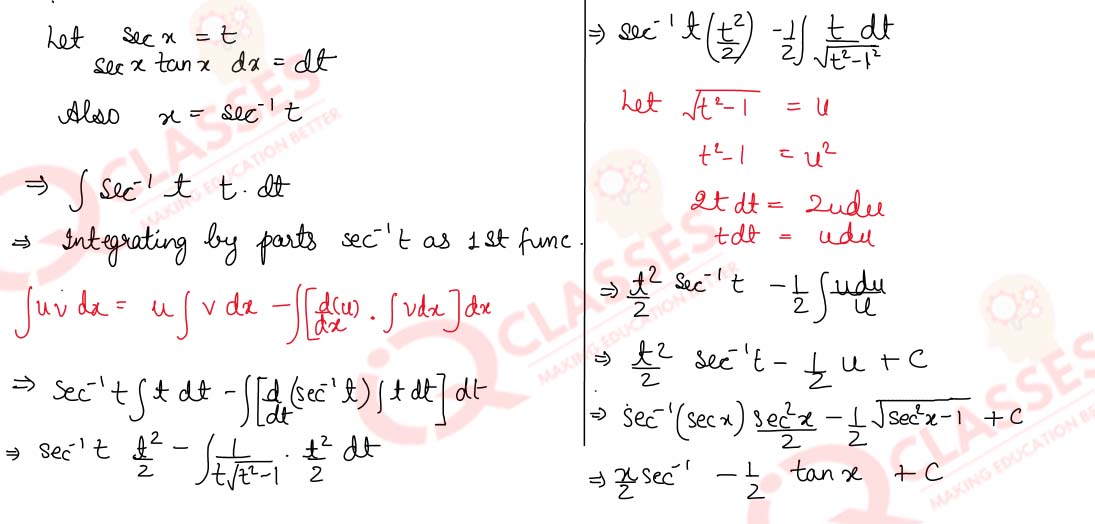 Let sec x = t
sec x tan x dx = dt
Also x = sec⁻¹ t
⇒ ∫ sec⁻¹ t t. dt
⇒ Integrating by parts sec⁻¹t as 1st func.
∫uv dx = u ∫ v dx − ∫[d(u)/dx . ∫vdx] dx
⇒ sec⁻¹ t ∫ t dt − ∫[d/dt (sec⁻¹ t) ∫ t dt] dt
⇒ sec⁻¹ t t²/2 − ∫ 1/(t√(t²−1)) . t²/2 dt
⇒ sec⁻¹ t (t²/2) − 1/2 ∫ t dt/√(t²−1²)
Let √(t²−1) = u
t²−1 = u²
2t dt = 2udu
tdt = udu
⇒ t²/2 sec⁻¹ t − 1/2 ∫ udu/u
⇒ t²/2 sec⁻¹t − 1/2 u + C
⇒ sec⁻¹(sec x) sec²x/2 − 1/2 √(sec²x−1) + C
⇒ x/2 sec⁻¹ − 1/2 tan x + C
CLASSES
MAKING EDUCATION BETTER
CLASSES
MAKING EDUCATION BETTER